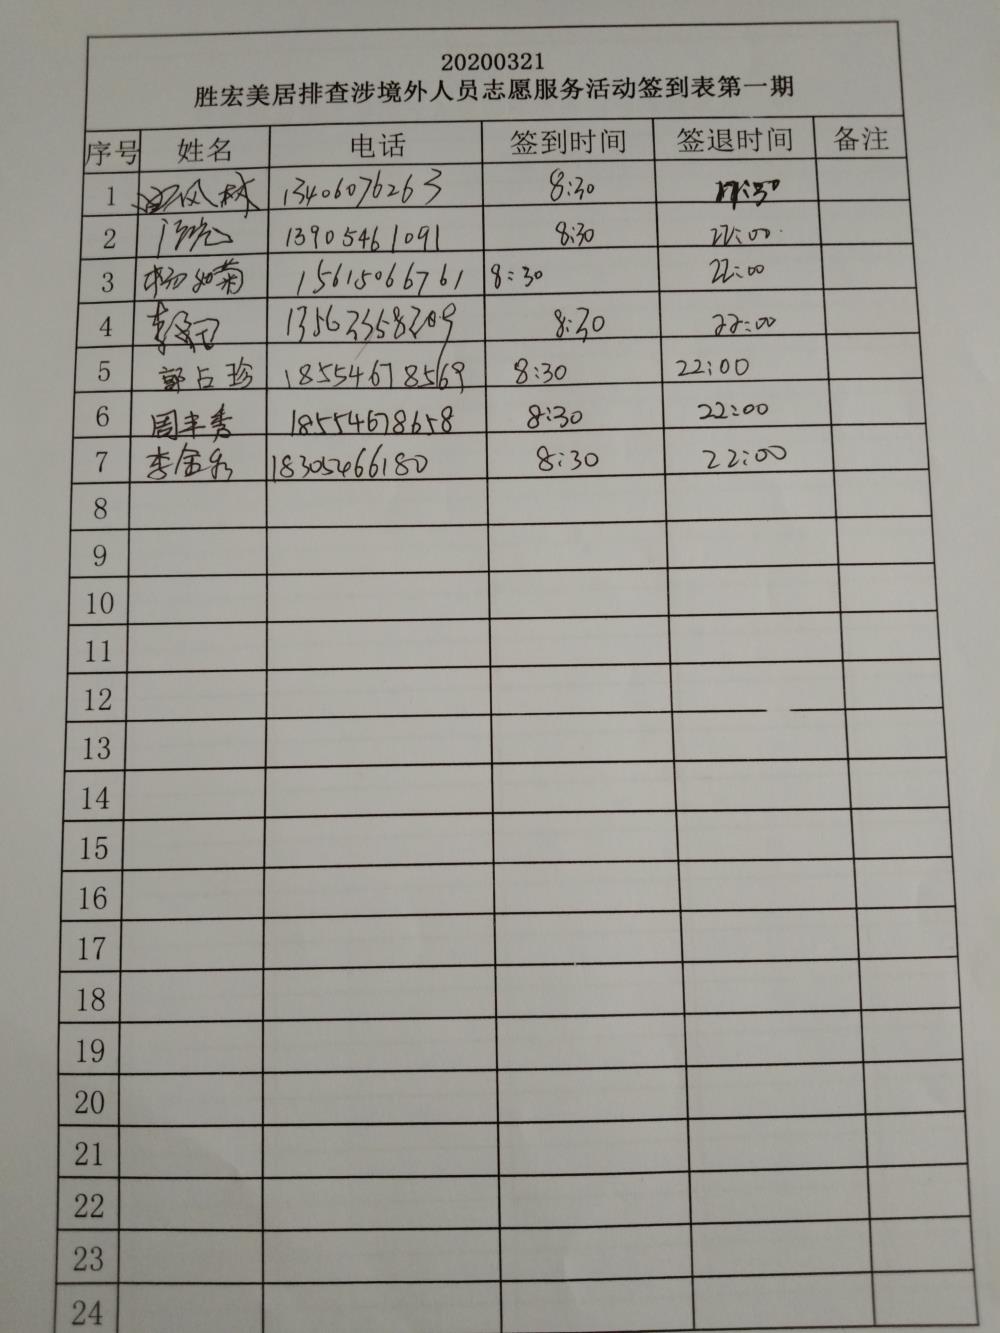 20200321
胜宏美居排查涉境外人员志愿服务活动签到表第一期
序号 姓名 电话 签到时间 签退时间 备注
1 13406076263 8:30
2 13905461091 8:30 22:00
3 杨如菊 15615066761 8:30 22:00
4 8:30 22:00
5 郭占珍 18554678569 8:30 22:00
6 周丰秀 18554678658 8:30 22:00
7 李金永 18305466180 8:30 22:00
8
9
10
11
12
13
14
15
16
17
18
19
20
21
22
23
24